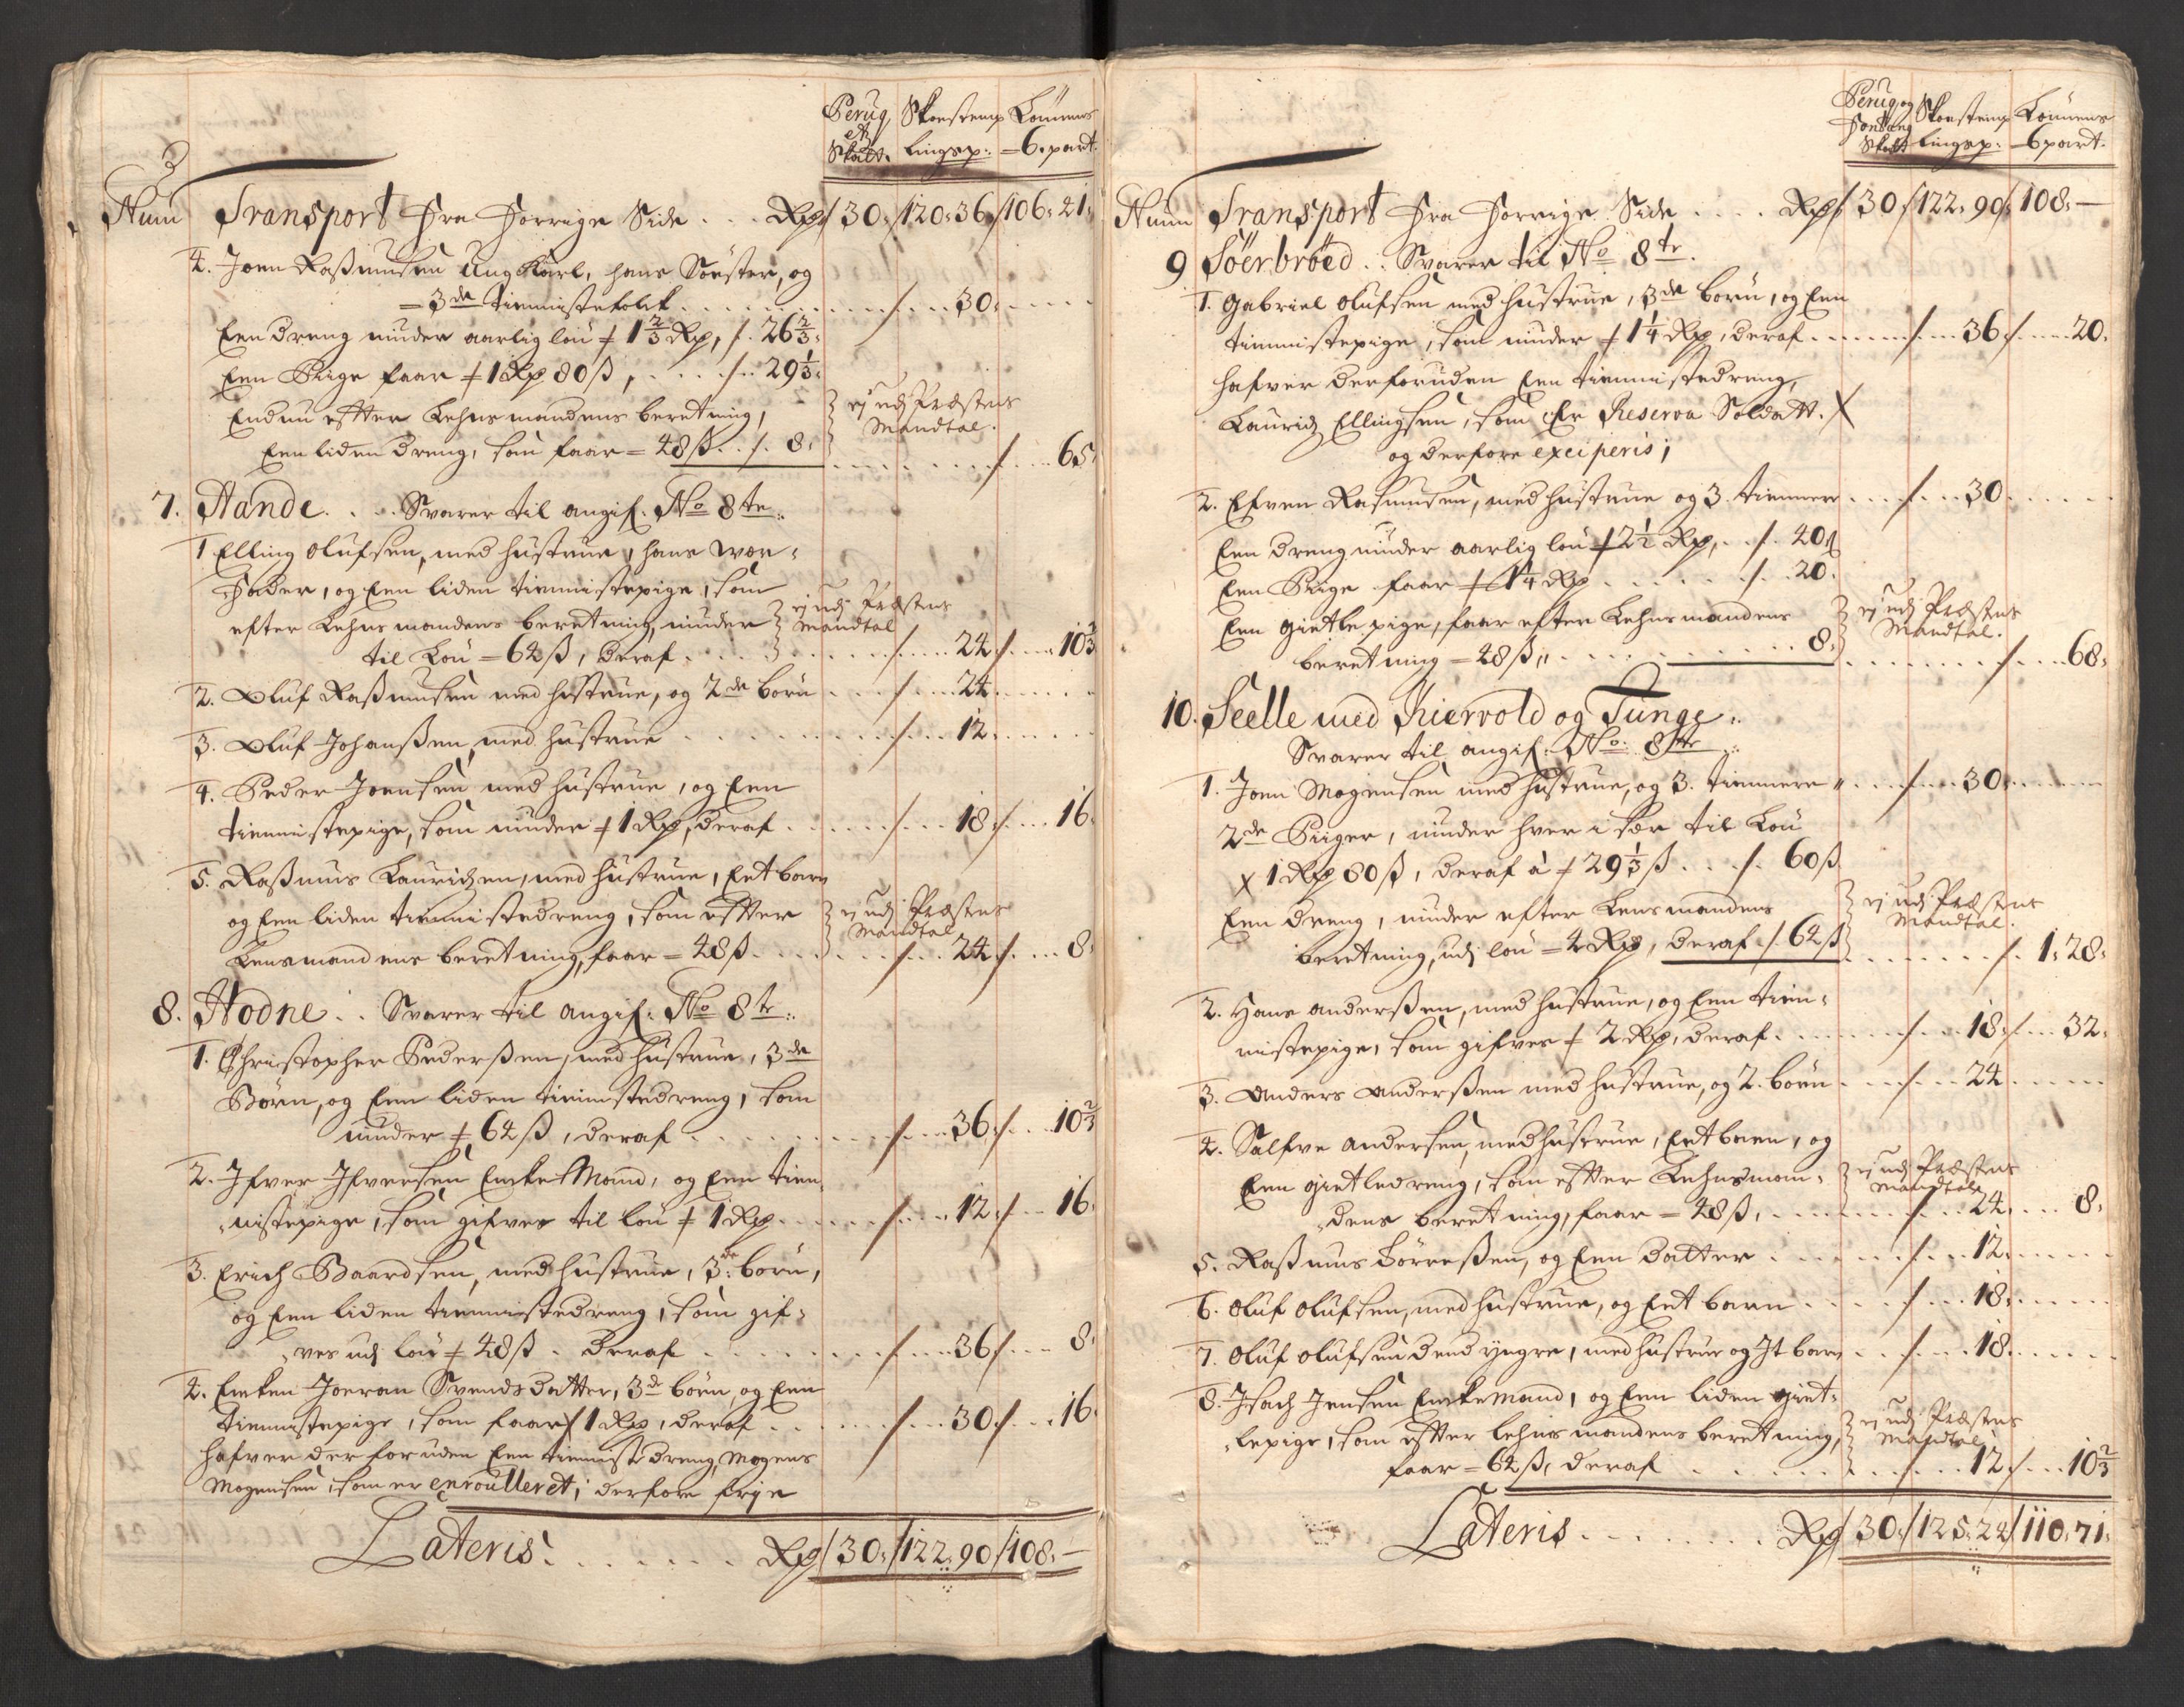 3
Peruq Skoestemp Lönnens
Skatt. lingsp: 6. part.
Num Transport Fra Forrige Side . . . Rdr 30: 120: 36 106: 21:
4. Joen Rasmusen Ung Karl, hans Söster, og
3de tiennistefolch . . . 30:
Een dreng niuder aarlig lön 1 2/3 Rdr, 26 2/3:
Een Piige faar 1 Rdr 80 ß, . . . 29 1/3:
Endnu efter Lehnsmandens beretning, ej udj Præstens
Een liden dreng, som faar 48 ß . . 8: Mandtal.
65
7. Hande . . . Svarer til angif. No 8te:
1 Elling Olufsen, med hustrue, hans vær-
fader, og Een liden tiennistepige, som ej udj Præstens
efter Lehnsmandens beretning, niuder Mandtal
til Lön 64 ß, deraf . . . 24 10 2/3
2. Oluf Rasmusen med hustrue, og 2de börn . . . 24
3. Oluf Johanßen, med hustrue . . . 12
4. Peder Joensen med hustrue, og Een
tiennistepige, som niuder 1 Rdr, deraf . . . 18 16
5. Rasmus Lauridzen, med hustrue, Eet barn
og Een liden tiennistedreng, som efter ej udj Præstens
Lensmandens beretning, faar 48 ß . . . Mandtal 24 8:
8. Hodne . . Svarer til angif: No 8te:
1. Christopher Pederßen, med hustrue, 3de
Börn, og Een liden tiennistedreng, som
niuder 64 ß, deraf . . . 36 10 2/3
2. Ifver Ifversen Encke Mand, og Een tien-
nistepige, som gifves til lön 1 Rdr . . . 12 16
3. Erich Baardsen, med hustrue, 3de börn,
og Een liden tiennistedreng, som gif-
ves udj lön 48 ß. deraf . . . 36 8
4. Encken Joeran Svends datter, 3de börn, og Een
tiennistepige, som faar 1 Rdr, deraf . . . 30 16
hafver der foruden Een tiennist dreng, Mogens
Mogensen, som er enroulleret; derfore frije
Lateris . . . Rdr 30: 122: 90 108: —
Peruq og Skoestemp Lönnens
Skatt lingsp: 6 part.
Num Transport Fra Forrige Side . . . Rdr 30: 122: 90: 108: —
9 Söerbröed . . Svarer til No 8te.
1. Gabriel Olufsen med hustrue, 3de börn, og Een
tiennistepige, som niuder 1 1/4 Rdr, deraf . . . 36 20.
hafver derforuden Een tiennistedreng,
Lauridz Ellingsen, som Er Reserva Soldatt.
og derfore exciperis;
2. Efven Rasmusen, med hustrue og 3 tiennere . . . 30
Een dreng niuder aarlig lön 2 1/2 Rdr, . . 40 ß
Een Piige faar 1 1/4 Rdr . . . 20.
Een gietle pige, faar efter Lehnsmandens ej udj Præstens
beretning 48 ß, . . . 8: Mandtal.
68:
10. Seelle med Kiervold og Tunge:
Svarer til angif: No: 8te:
1. Joen Mogensen med hustrue, og 3. tiennere . . . 30
2de Piiger, niuder hver i sær til Lön
1 Rdr 80 ß, deraf à 29 1/3 ß . . . 60 ß
Een dreng, niuder efter Lensmandens ej udj Præstens
beretning, udj lön 4 Rdr, deraf 64 ß Mandtal.
1: 28:
2. Hans Anderßen, med hustrue, og Een tien-
nistepige, som gifves 2 Rdr, deraf . . . 18 32:
3. Anders Anderßen med hustrue, og 2. börn . . . 24
4. Salfve Andersen, med hustrue, Eet barn, og
Een gietledreng, som efter Lehnsman- ej udj Præstens
dens beretning, faar 48 ß, . . . Mandtal 24 8:
5. Rasmus Törreßen, og Een datter . . . 12
6. Oluf Olufsen, med hustrue, og Eet barn . . . 18:
7. Oluf Olufsen dend yngre, med hustrue og It barn . . . 18
8. Isach Jensen Enckemand, og Een liden giet-
lepige, som efter lehnsmandens beretning, ej udj Præstens
faar 64 ß, deraf . . . Mandtal 12 10 2/3
Lateris . . . Rdr 30: 125: 24 110: 71: